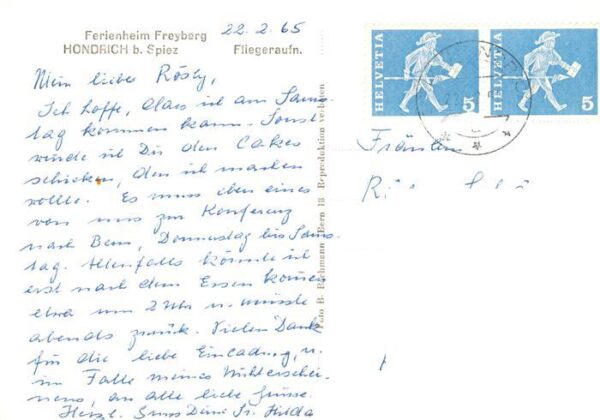 22.2.65
Ferienheim Freyberg
HONDRICH b. Spiez Fliegeraufn.
Mein liebes Rösly,
Ich hoffe, dass ich am Sams-
tag kommen kann. Sonst
würde ich Dir den Cakes
schicken, den ich machen
wollte. Es muss eben eines
von uns zur Konferenz
nach Bern, Donnerstag bis Sams-
tag. Allenfalls könnte ich
erst nach dem Essen kommen
etwa um 2 Uhr u. müsste
abends zurück. Vielen Dank
für die liebe Einladung, u.
im Falle meines Nichterschei-
nens, an alle liebe Grüsse.
Herzl. Gruss Deine Sr. Hilda
Foto B. Rachmann Bern 18 Reproduktion verboten
HELVETIA 5
HELVETIA 5
Fräulein